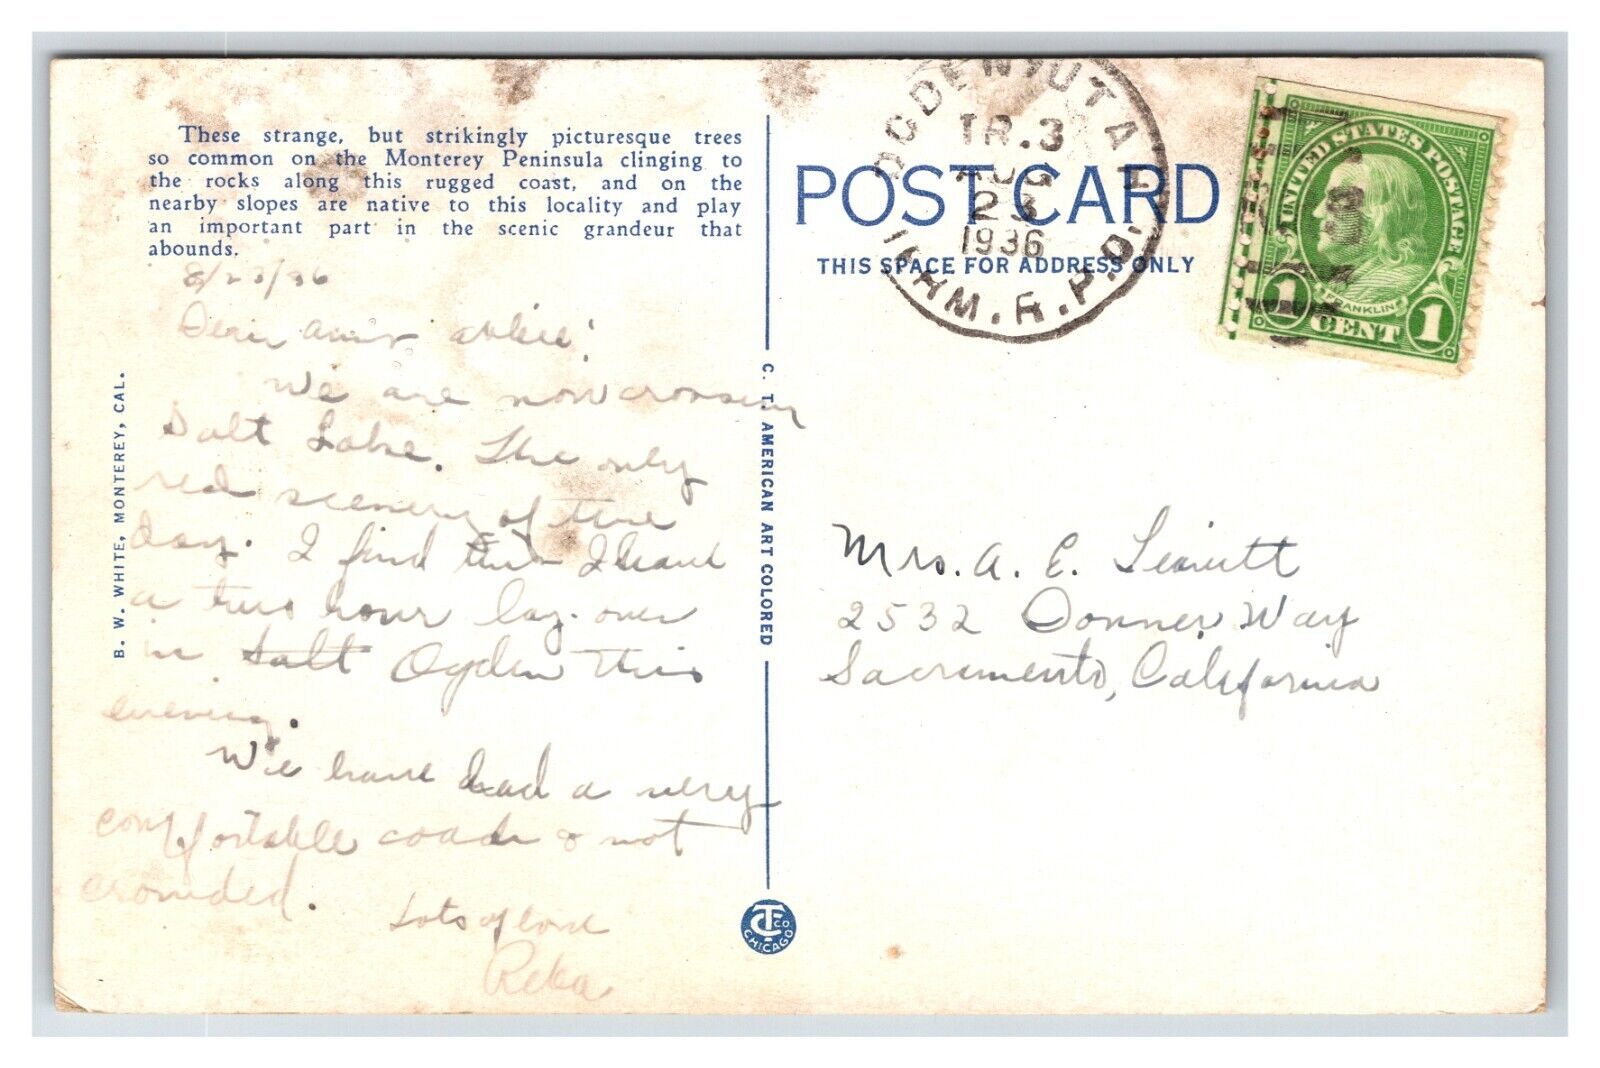 These strange, but strikingly picturesque trees
so common on the Monterey Peninsula clinging to
the rocks along this rugged coast, and on the
nearby slopes are native to this locality and play
an important part in the scenic grandeur that
abounds.
8/23/36
Dear
We are now crossing
Salt Lake. The only
red scenery of the
day. I find that I have
a two hour lay-over
in Salt Ogden this
evening.
We have had a very
comfortable coach & not
crowded.
Lots of love
Reba
B. W. WHITE, MONTEREY, CAL.
C. T. AMERICAN ART COLORED
CT CO
CHICAGO
POST CARD
THIS SPACE FOR ADDRESS ONLY
OGDEN, UTAH
TR.3
AUG
23
1936
R.P.O.
UNITED STATES POSTAGE
FRANKLIN
1 CENT 1
Mrs. A. E.
2532 Donner Way
Sacramento, California